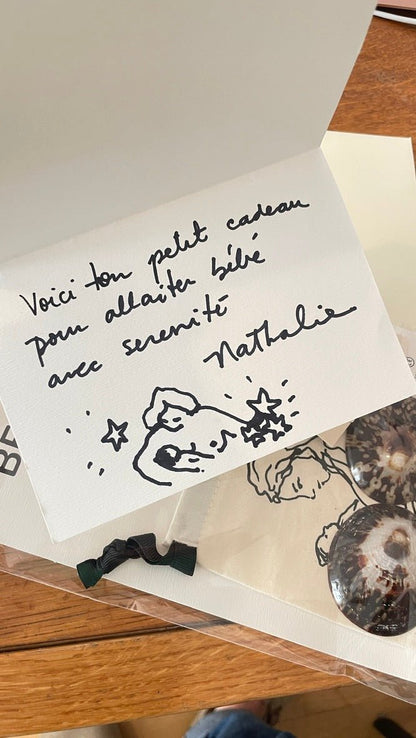 Voici ton petit cadeau
pour allaiter bébé
avec serenité
Nathalie